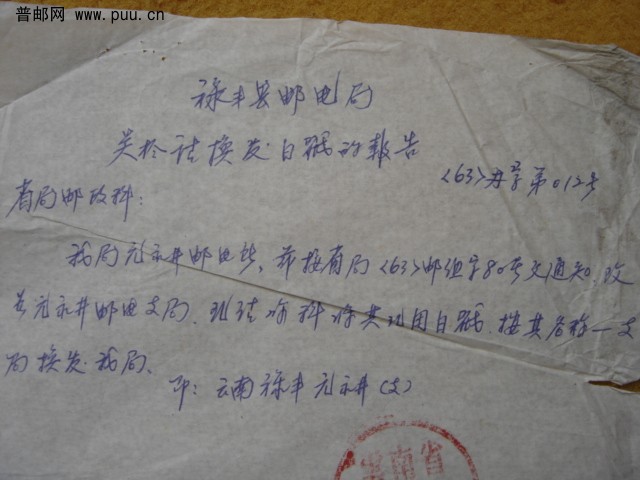 普邮网 www.puu.cn
禄丰县邮电局
关於请换发日戳的报告
<63>办字第012号
省局邮政科:
我局元永井邮电所、兹接省局<63>邮组字80号文通知、改
为元永井邮电支局、现请你科将其现用日戳、按其名称一支
局换发我局、
即:云南禄丰元永井(支)
云南省